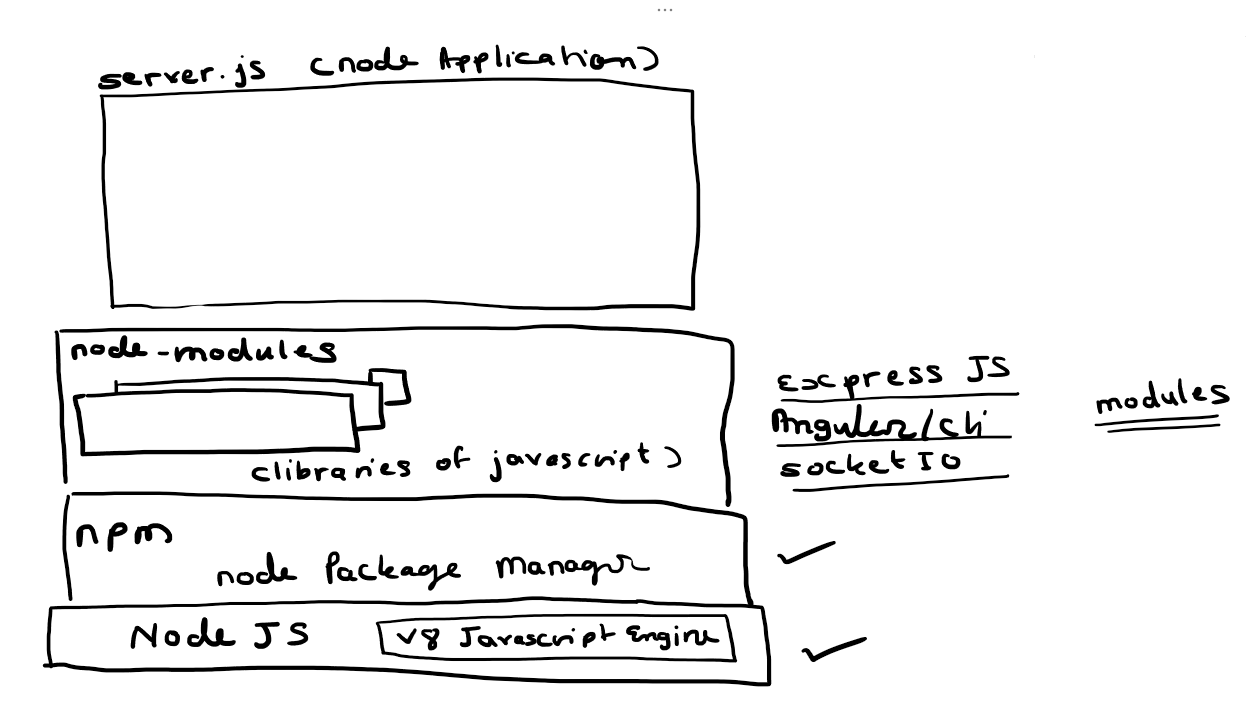 server.js (node Application)
node-modules
(libraries of javascript)
Express JS
Angular/cli
socket IO
modules
npm
node Package Manager
Node JS
V8 Javascript Engine